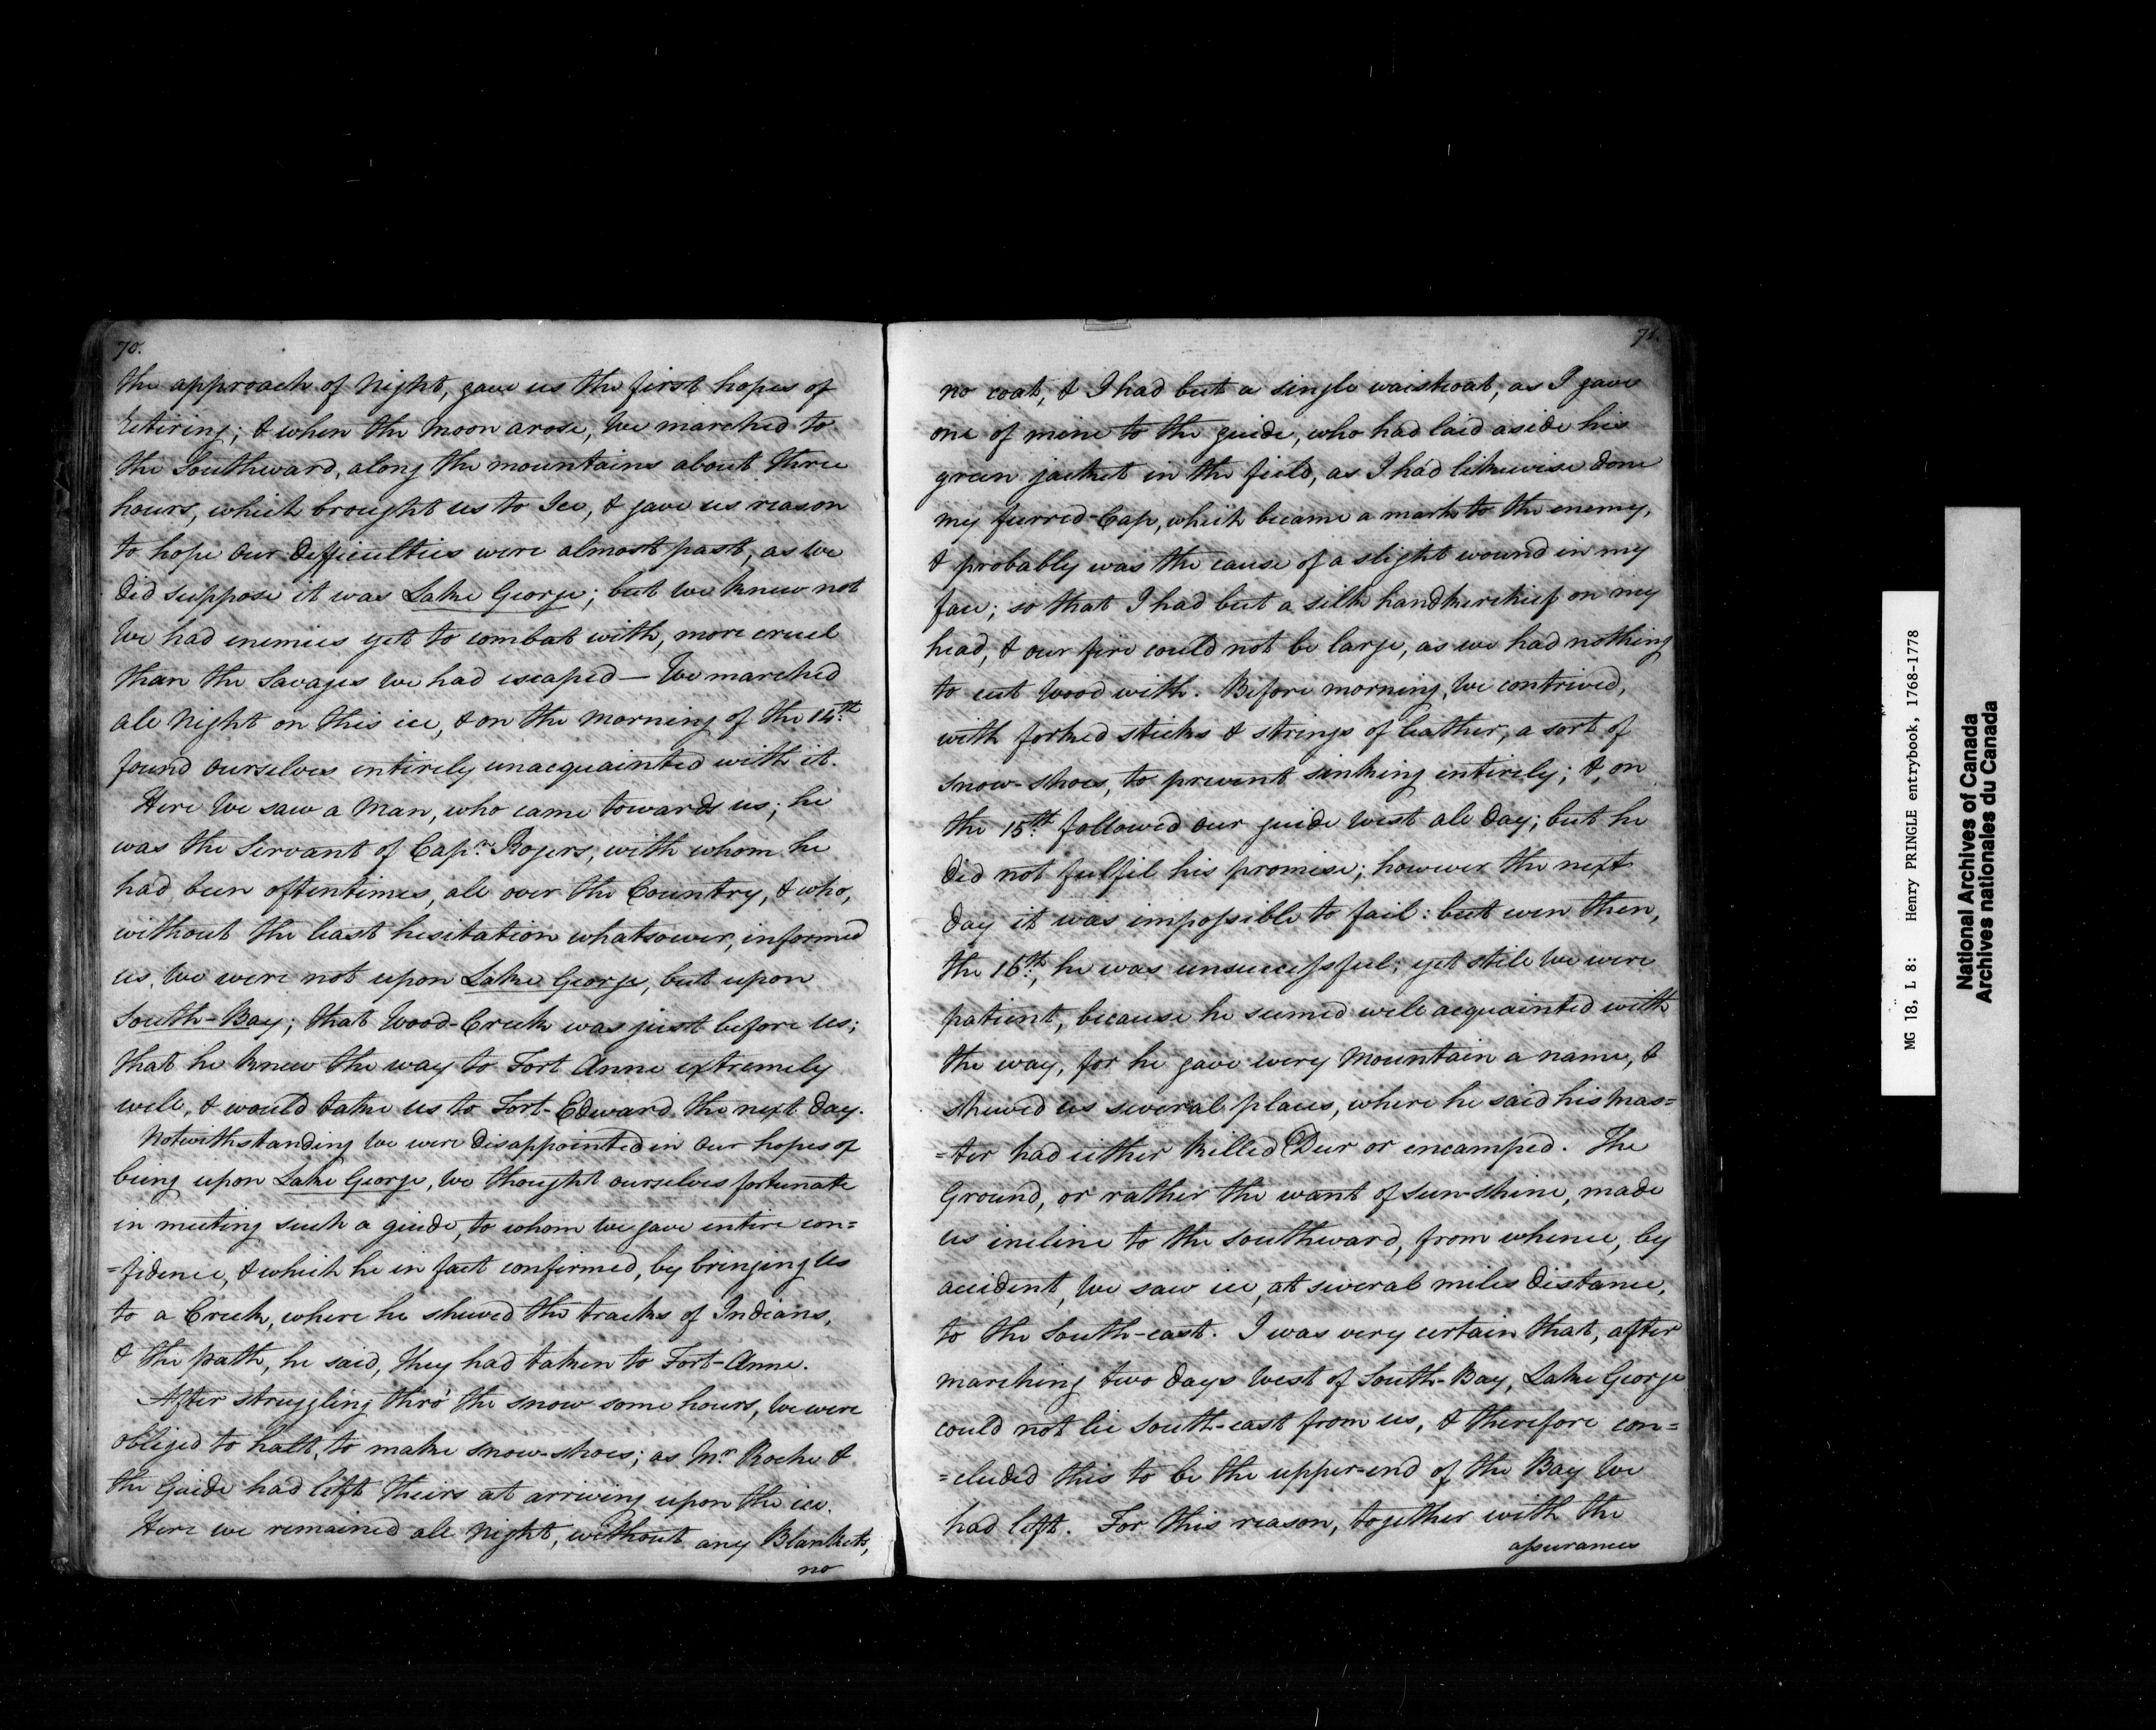 70.
the approach of Night, gave us the first hopes of
retiring; & when the Moon arose, We marched to
the Southward, along the mountains about three
hours, which brought us to Ice, & gave us reason
to hope our Difficulties were almost past, as We
Did suppose it was Lake George; but we knew not
We had enemies yet to combat with, more cruel
than the Savages We had escaped — We marched
all Night on this ice, & on the Morning of the 14th
found ourselves entirely unacquainted with it.
Here We saw a Man, who came towards us; he
was the Servant of Capn. Rogers, with whom he
had been oftentimes, all over the Country, & who,
without the least hesitation whatsoever, informed
us, We were not upon Lake George, but upon
South-Bay; that Wood-Creek was just before us;
that he knew the way to Fort Anne extremely
well, & would take us to Fort-Edward the next Day.
Notwithstanding We were Disappointed in our hopes of
being upon Lake George, We thought ourselves fortunate
in meeting such a guide, to whom We gave entire con=
=fidence, & which he in fact confirmed, by bringing Us
to a Creek, where he shewed the tracks of Indians,
& the path, he said, they had taken to Fort-Anne.
After struggling thro' the snow some hours, We were
obliged to halt, to make snow-shoes; as Mr. Roche &
the Guide had left theirs at arriving upon the ice.
Here we remained all Night, without any Blankets,
no
71.
no coat, & I had but a single waistcoat, as I gave
one of mine to the guide, who had laid aside his
green jacket in the field, as I had likewise Done
my furred-Cap, which became a mark to the enemy,
& probably was the cause of a slight wound in my
face; so that I had but a silk handkerchief on my
head, & our fire could not be large, as we had nothing
to cut Wood with. Before morning, We contrived,
with forked sticks & strings of leather, a sort of
snow-shoes, to prevent sinking entirely; &, on
the 15th. followed our guide West all Day; but he
Did not fulfil his promise; however the next
Day it was impossible to fail: but even then,
the 16th., he was unsuccessful; yet still We were
patient, because he seemed well acquainted with
the way, for he gave every Mountain a name, &
shewed us several places, where he said his Mas=
=ter had either killed Deer or encamped. The
Ground, or rather the want of Sun-shine, made
us incline to the southward, from whence, by
accident, We saw ice, at several miles Distance,
to the South-east. I was very certain that, after
marching two Days West of South-Bay, Lake George
could not lie South-east from us, & therefore con=
=cluded this to be the upper-end of the Bay We
had left. For this reason, together with the
assurances
MG 18, L 8: Henry PRINGLE entrybook, 1768-1778
National Archives of Canada
Archives nationales du Canada